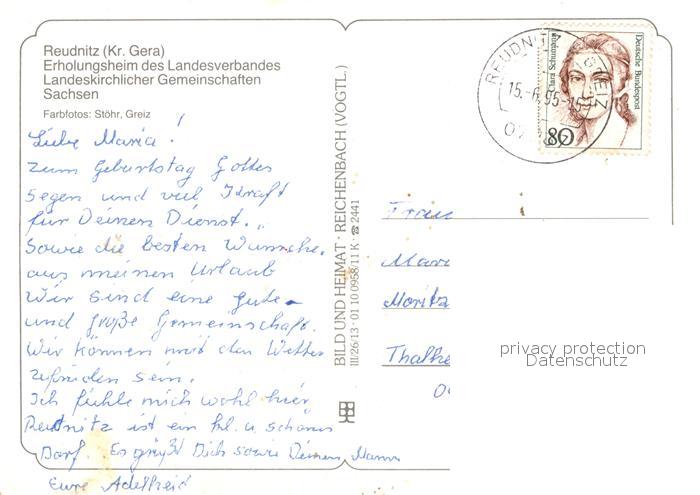 Reudnitz (Kr. Gera)
Erholungsheim des Landesverbandes
Landeskirchlicher Gemeinschaften
Sachsen
Farbfotos: Stöhr, Greiz
Liebe Maria!
zum Geburtstag Gottes
Segen und viel Kraft
für Deinen Dienst.
Sowie die besten Wünsche.
aus meinen Urlaub
Wir sind eine gute
und große Gemeinschaft.
Wir können mit den Wetter
zufrieden sein.
Ich fühle mich wohl hier
Reudnitz ist ein kl. u schönes
Dorf. Es grüßt Dich sowie Deinen Mann
Eure Adelheid
BILD UND HEIMAT · REICHENBACH (VOGTL.)
III/26/13 · 01 10 0958/11 K · ☎ 2441
REUDNITZ GREIZ
15.-6.95-15
07
Deutsche Bundespost
Clara Schumann
80
Frau
Mari
Moritz
Thalhe
09
privacy protection
Datenschutz